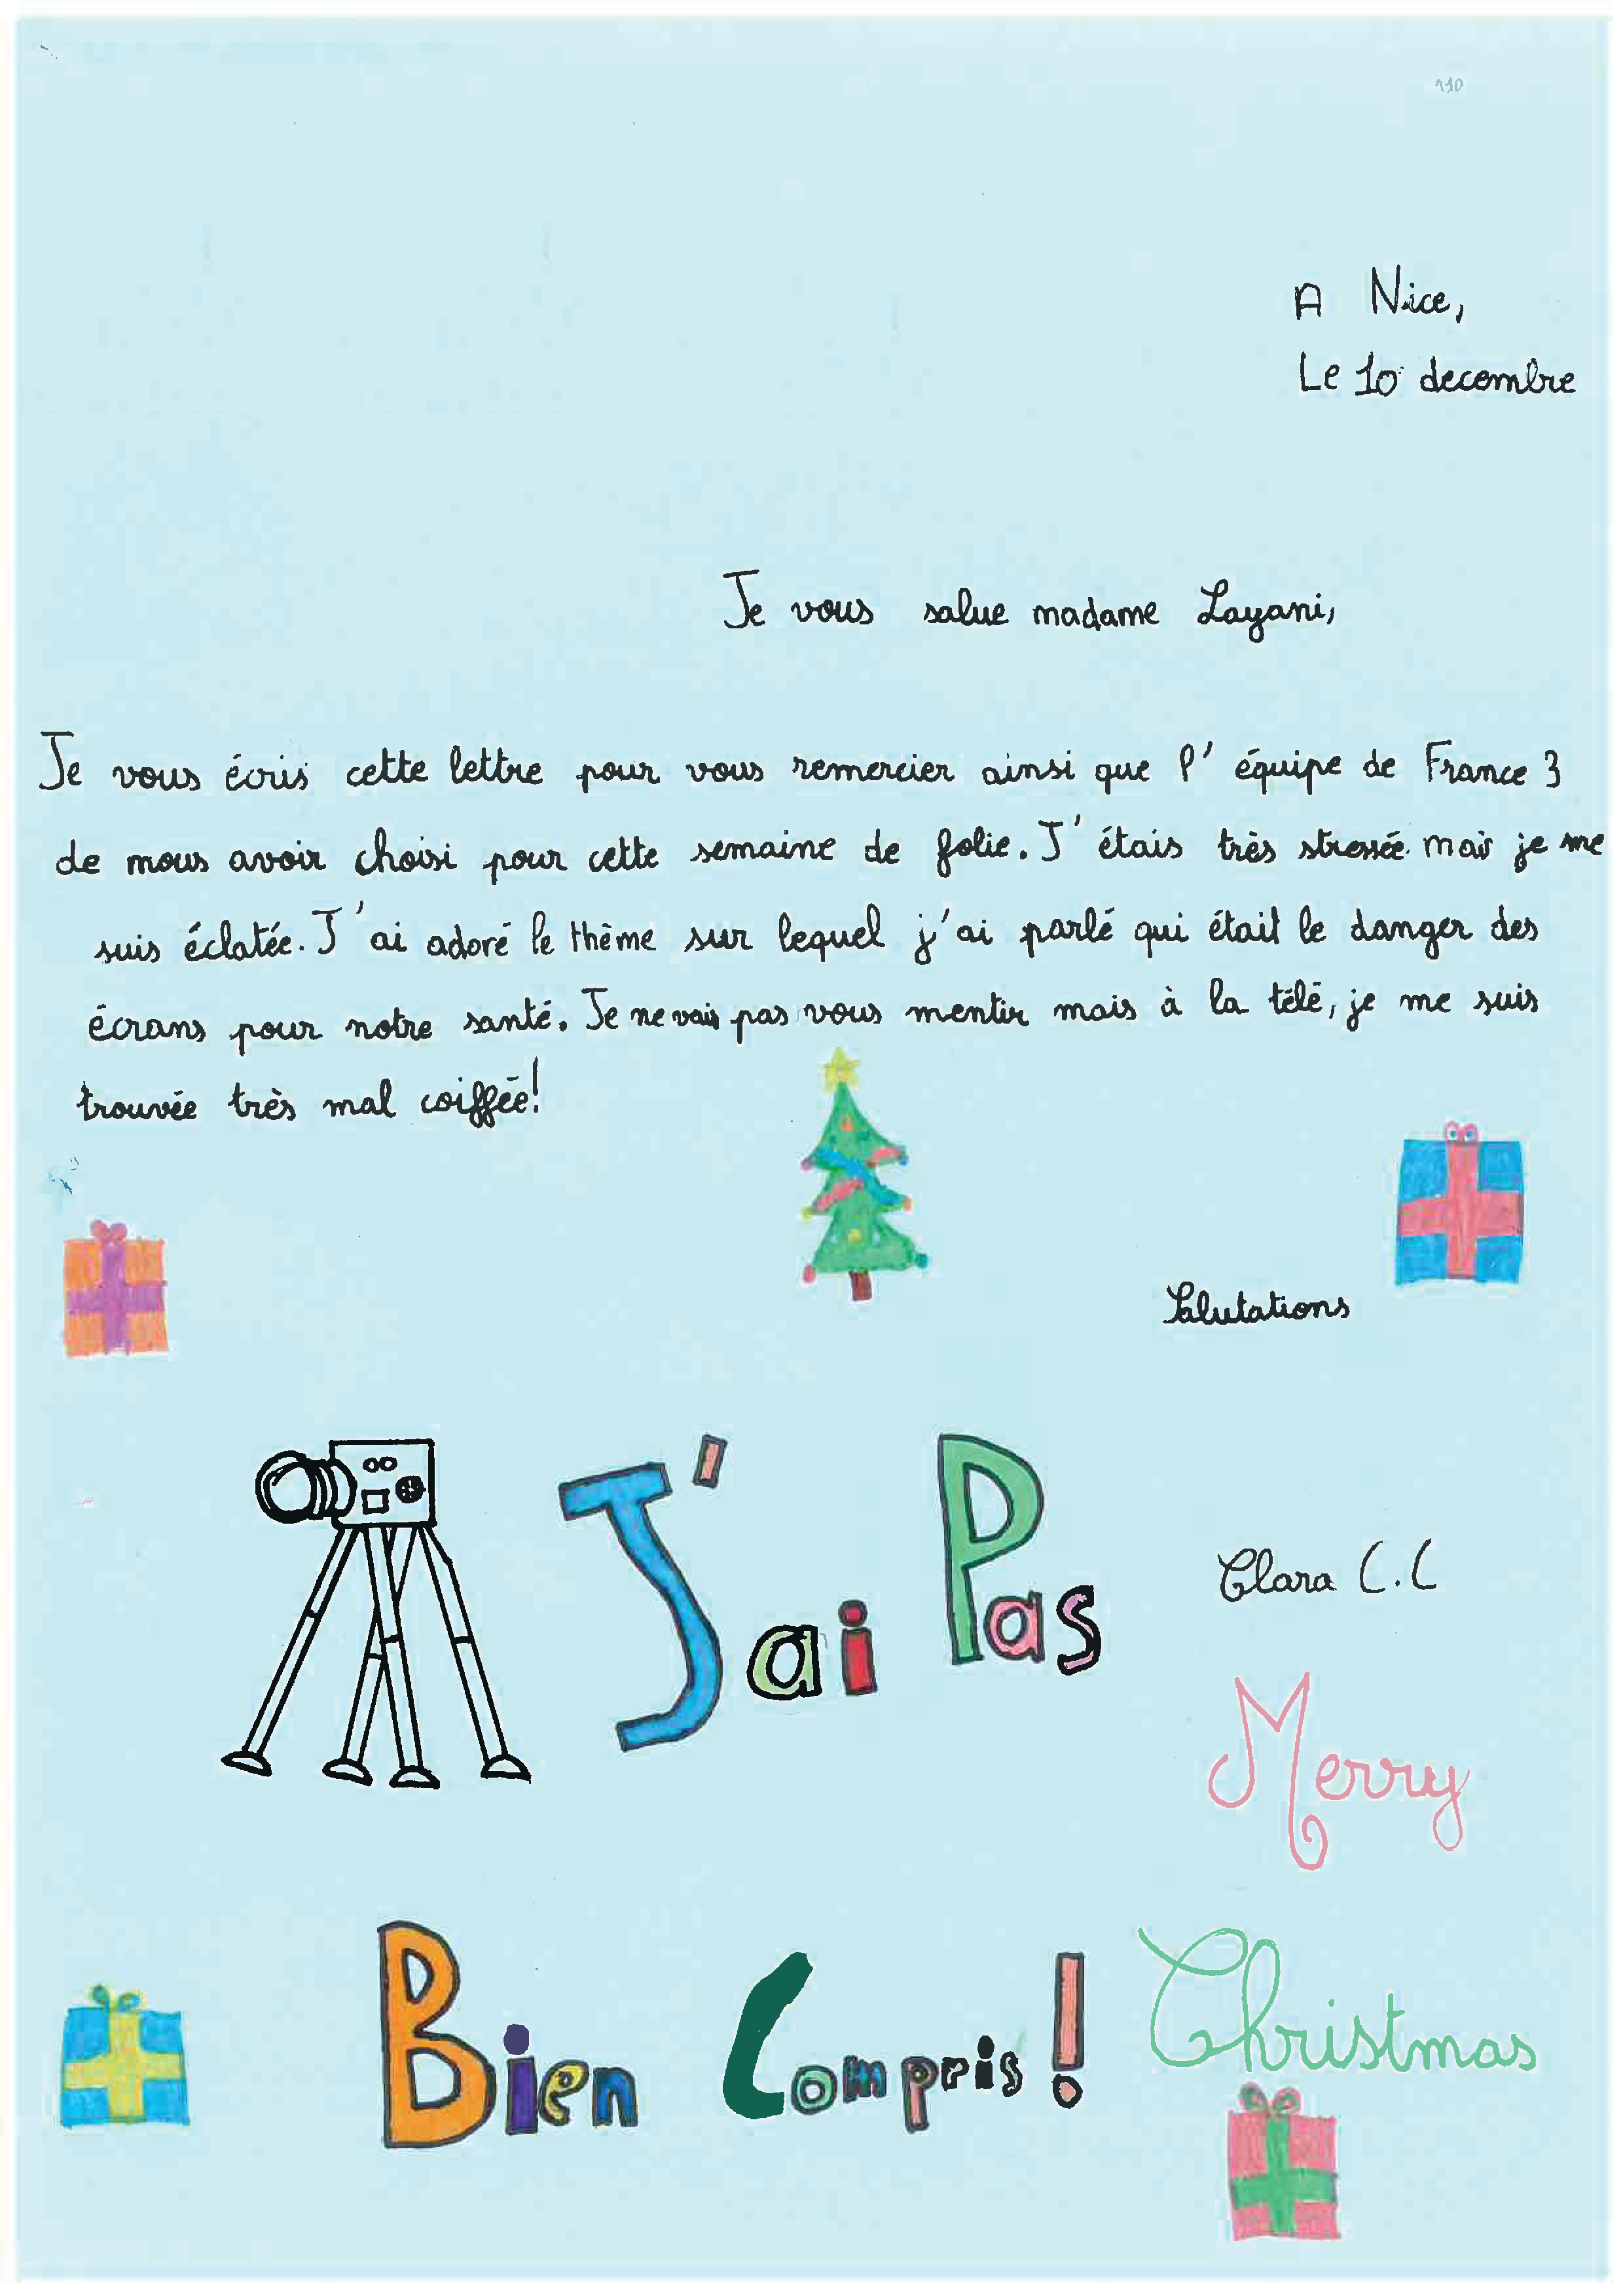 110
A Nice,
Le 10 decembre
Je vous salue madame Layani,
Je vous écris cette lettre pour vous remercier ainsi que l'équipe de France 3
de nous avoir choisi pour cette semaine de folie. J'étais très stressée mais je me
suis éclatée. J'ai adoré le thème sur lequel j'ai parlé qui était le danger des
écrans pour notre santé. Je ne vais pas vous mentir mais à la télé, je me suis
trouvée très mal coiffée!
Salutations
J'ai Pas
Clara C.C
Merry
Bien Compris!
Christmas